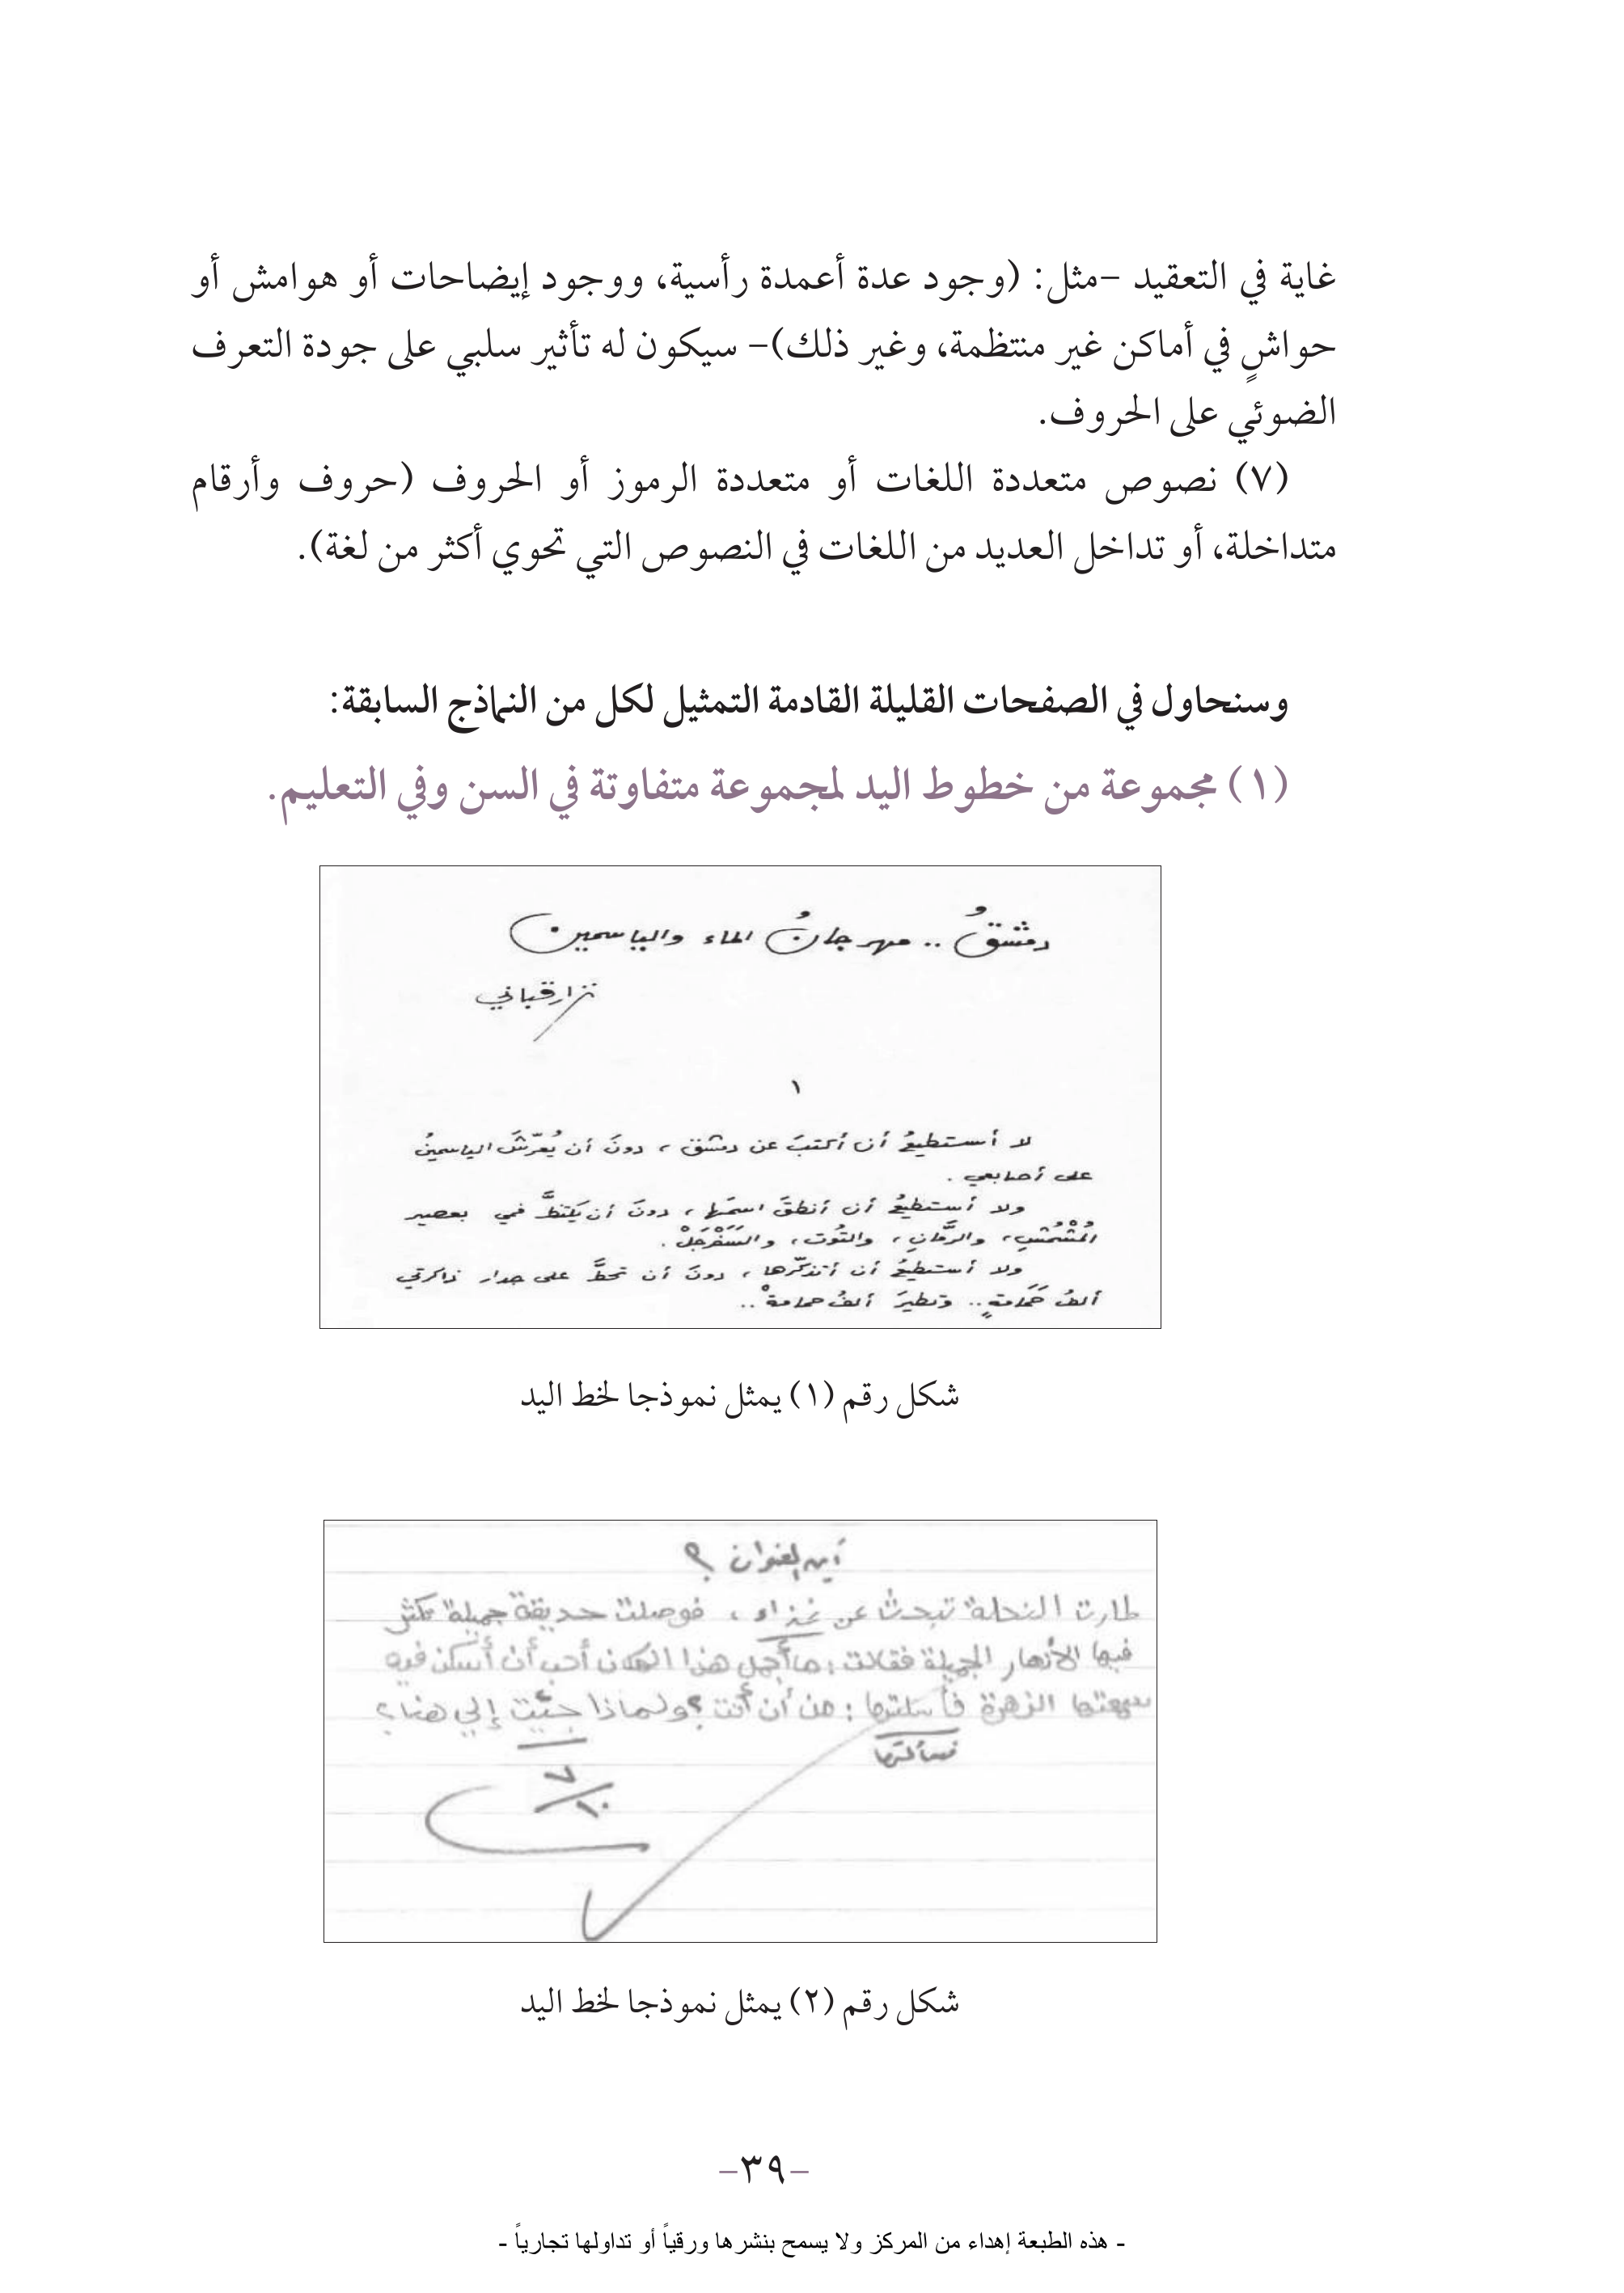 غاية في التعقيد –مثل: (وجود عدة أعمدة رأسية، ووجود إيضاحات أو هوامش أو
حواشٍ في أماكن غير منتظمة، وغير ذلك)– سيكون له تأثير سلبي على جودة التعرف
الضوئي على الحروف.
(٧) نصوص متعددة اللغات أو متعددة الرموز أو الحروف (حروف وأرقام
متداخلة، أو تداخل العديد من اللغات في النصوص التي تحوي أكثر من لغة).
وسنحاول في الصفحات القليلة القادمة التمثيل لكل من النماذج السابقة:
(١) مجموعة من خطوط اليد لمجموعة متفاوتة في السن وفي التعليم.
دمشقُ .. مهرجانُ الماء والياسمين
نزار قباني
١
لا أستطيعُ أن أكتبَ عن دمشق، دونَ أن يُعرّشَ الياسمينُ
على أصابعي .
ولا أستطيعُ أن أنطقَ اسمَها، دونَ أن يكتظَّ فمي بعصير
المُشْمُشِ، والرمَّانِ، والتُوت، والسَفَرْجَلْ .
ولا أستطيعُ أن أتذكّرها، دونَ أن تحطَّ على جدار ذاكرتي
ألفُ حَمَامَةٍ .. وتطيرَ ألفُ حمامةْ ..
شكل رقم (١) يمثل نموذجا لخط اليد
أين العنوان ؟
طارت النحلة تبحث عن غذاء ، فوصلت حديقة جميلة تكثر
فيها الأزهار الجميلة فقالت : ما أجمل هذا المكان أحب أن أسكن فيه
سمعتها الزهرة فأسلتها : من أن أنت ؟ ولماذا جئت إلي هنا ؟
فسألتها
٧
١٠
شكل رقم (٢) يمثل نموذجا لخط اليد
–٣٩–
- هذه الطبعة إهداء من المركز ولا يسمح بنشرها ورقياً أو تداولها تجارياً -